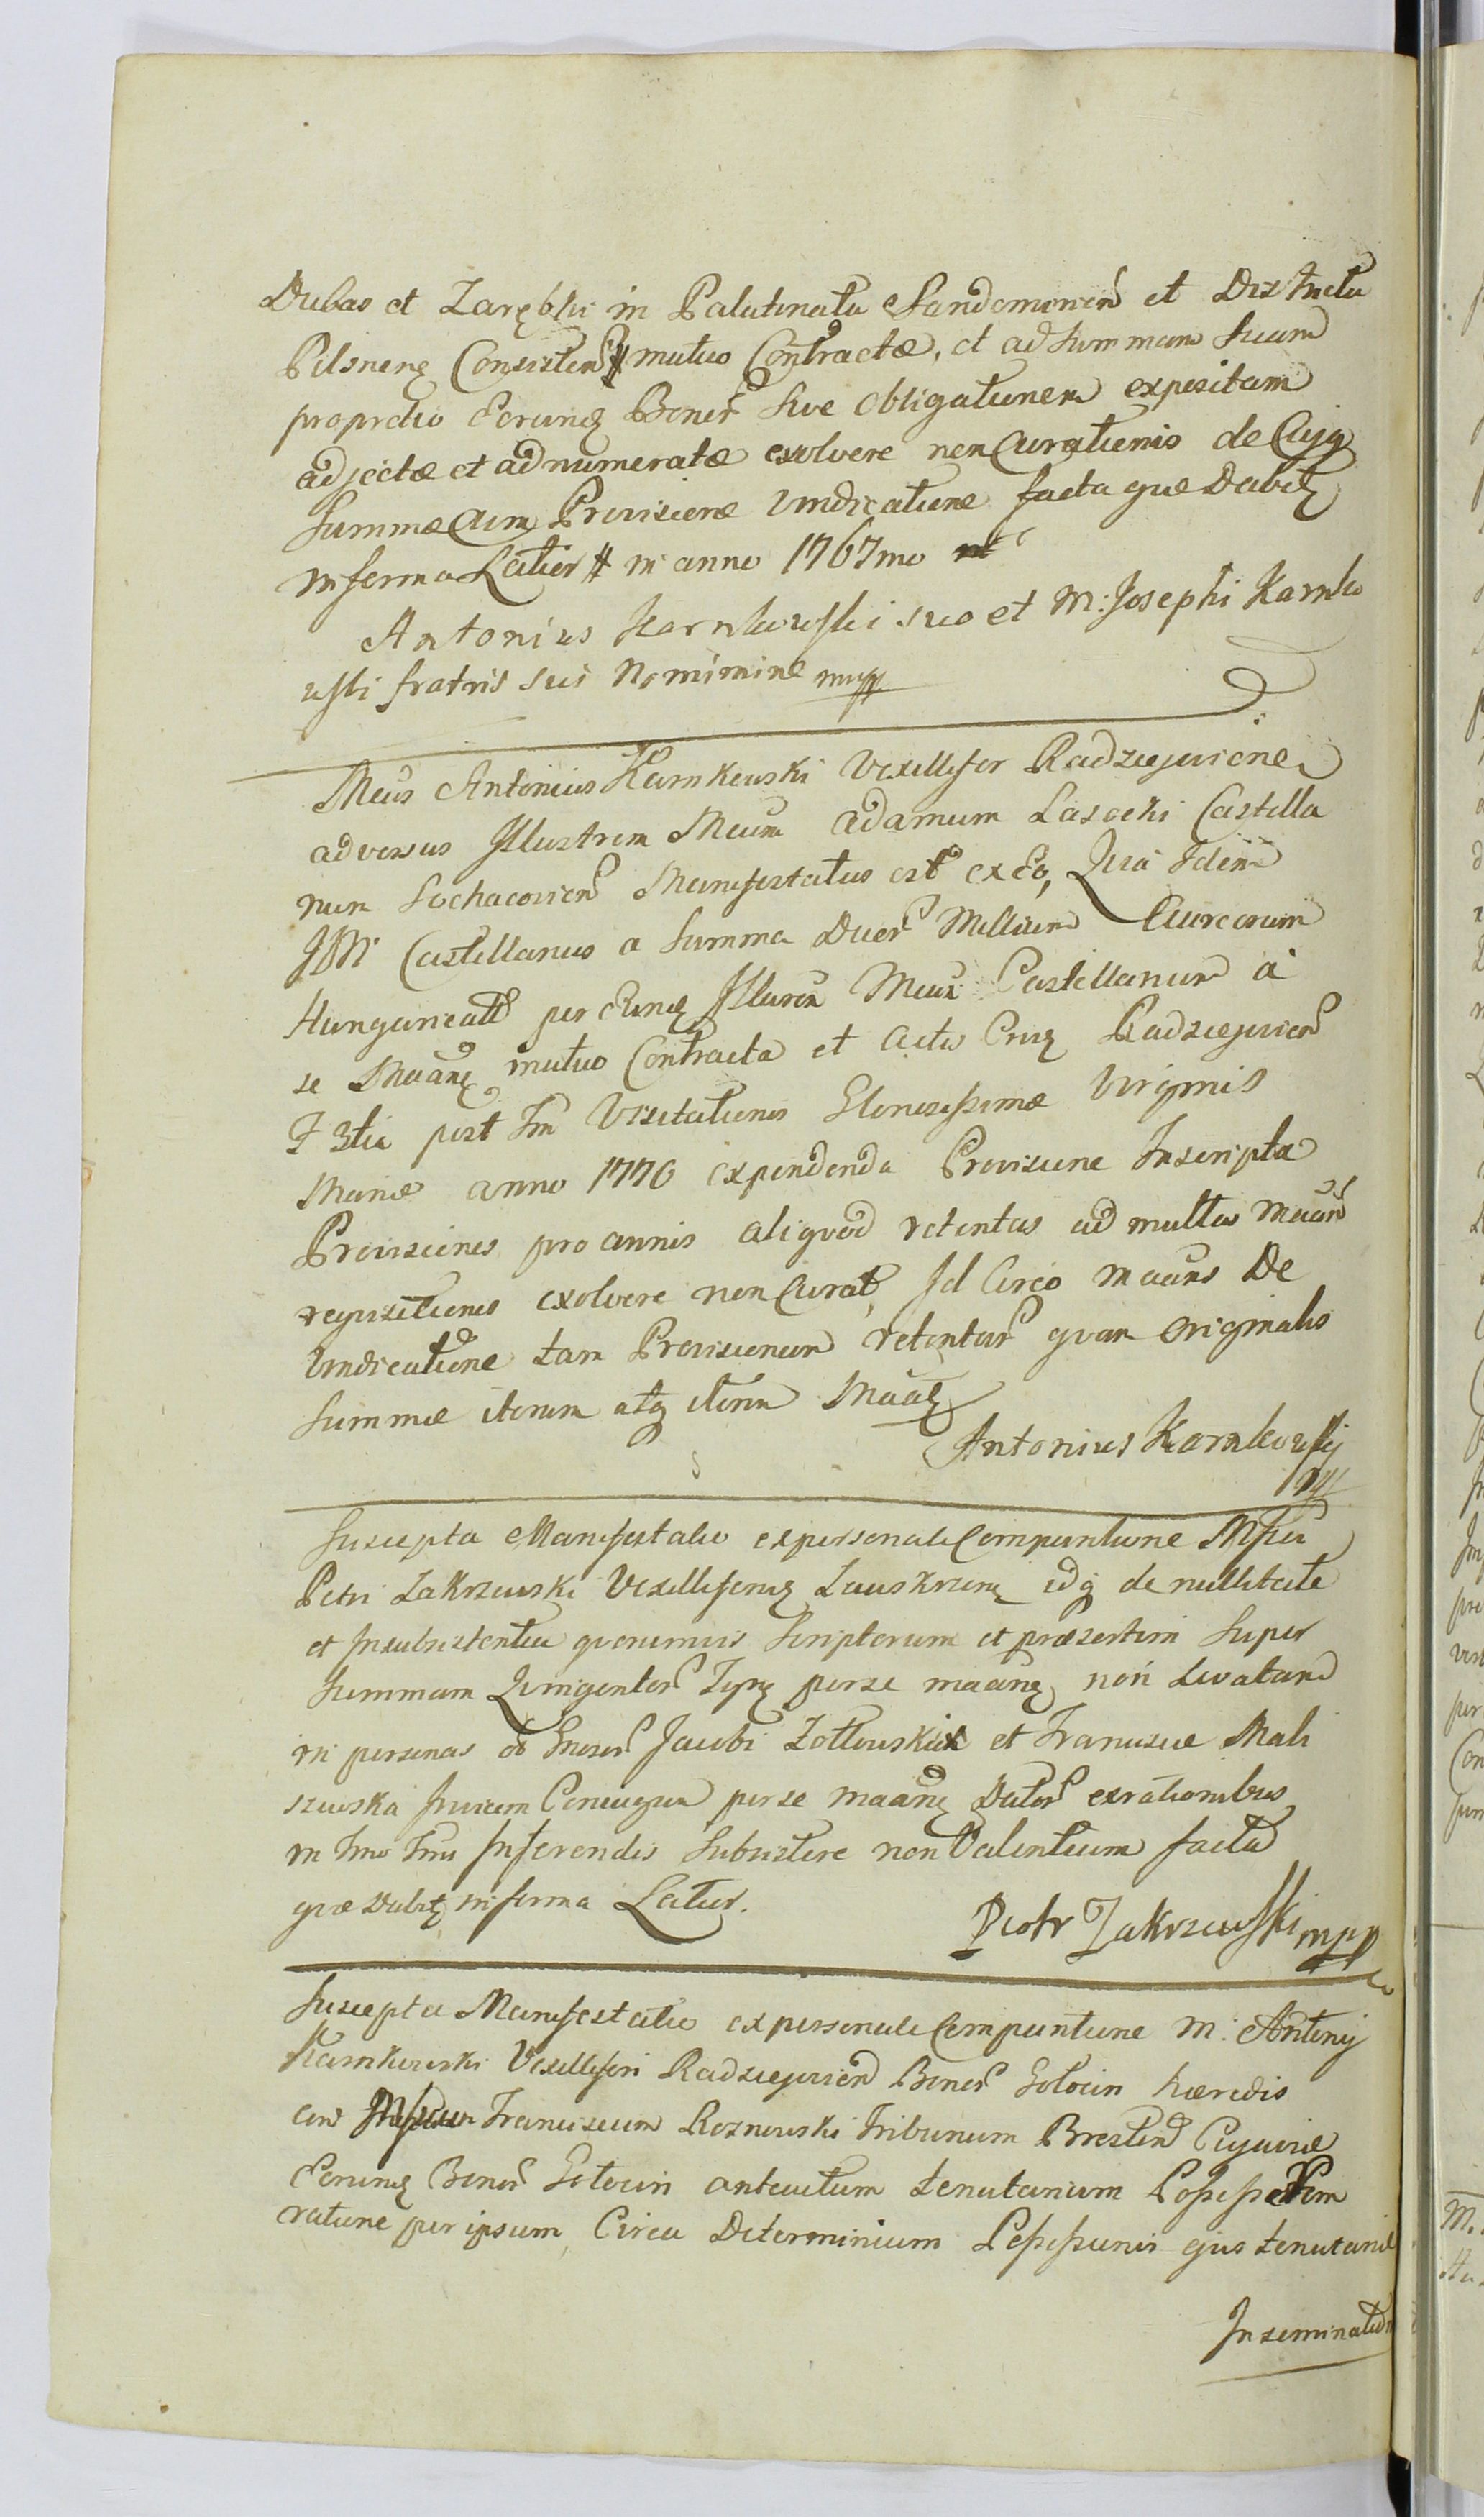 Dubas et Zarębki in Palatinatu Sandomirien et Districtu
Pilsnenę Consisten mutuo Contractæ, et ad Summam Suam
pro pretio Eorunę Bonor Sive obligationem expositam
adjectæ et adnumeratæ exolvere non Curationis de Cujq
Summæ Cum Provisione Vindicatione facta quæ Dabitę
in forma Latior # in anno 1767mo
Antonius Karnkowski suo et M: Josephi Karnko
wski fratris sui Nomimine mpp
Mcus Antonius Karnkowski Vexillifer Radziejovienę
adversus Illustrem Mcum Adamum Lasocki Castella
num Sochacovien Manifestatus est ex Eo, Quia Idem
JM Castellanus a Summa Duor Millium Aureorum
Hungaricali per Eunę Illurem Mcum Castellanum à
se Maanę mutuo Contracta et Actis Crię Radziejovien
F 3tia post Fm Visitationis Gloriosissimæ Virginis
Mariæ anno 1770 expendenda Provisione Inscripta
Provisiones pro annis aliquod retentas ad multas Maan
requisitiones exolvere non Curat, Id Circo Maans De
Vindicatione tam Provisionum retentar quam Originalis
Summæ iterum atq iterum Maatę
Antonius Karnkowskj
mpp
Suscepta Manifestatio ex personali Comparitione Mfici
Petri Zakrzewski Vexilliferię Lauskrienę idq de nullitate
et Insubsistentia quorumvis Scriptorum et præsertim Super
Summam Quingentor Typę per se maanę non Levatam
in personas Gnosor Jacobi Zottowski et Franciscæ Mali
szewska Invicem Coniugum per se maanę Dator ex rationibus
in Fmo Fmi Inferendis Subsistere non Valentium facta
quæ Dabitę in forma Latior.
Piotr Zakrzewski mpp
Suscepta Manifestatio ex personali Comparitione M: Antonij
Karnkowski Vexilliferi Radziejovien Bonor Gotocin hæredis
con Franciscum Roznowski Tribunum Bresten Cujaviæ
Eorunę Bonor Gotocin anteactum tenutarium Possessorem
ratione per ipsum Circa Determinium Possessionis ejus tenutariæ
Inseminatio